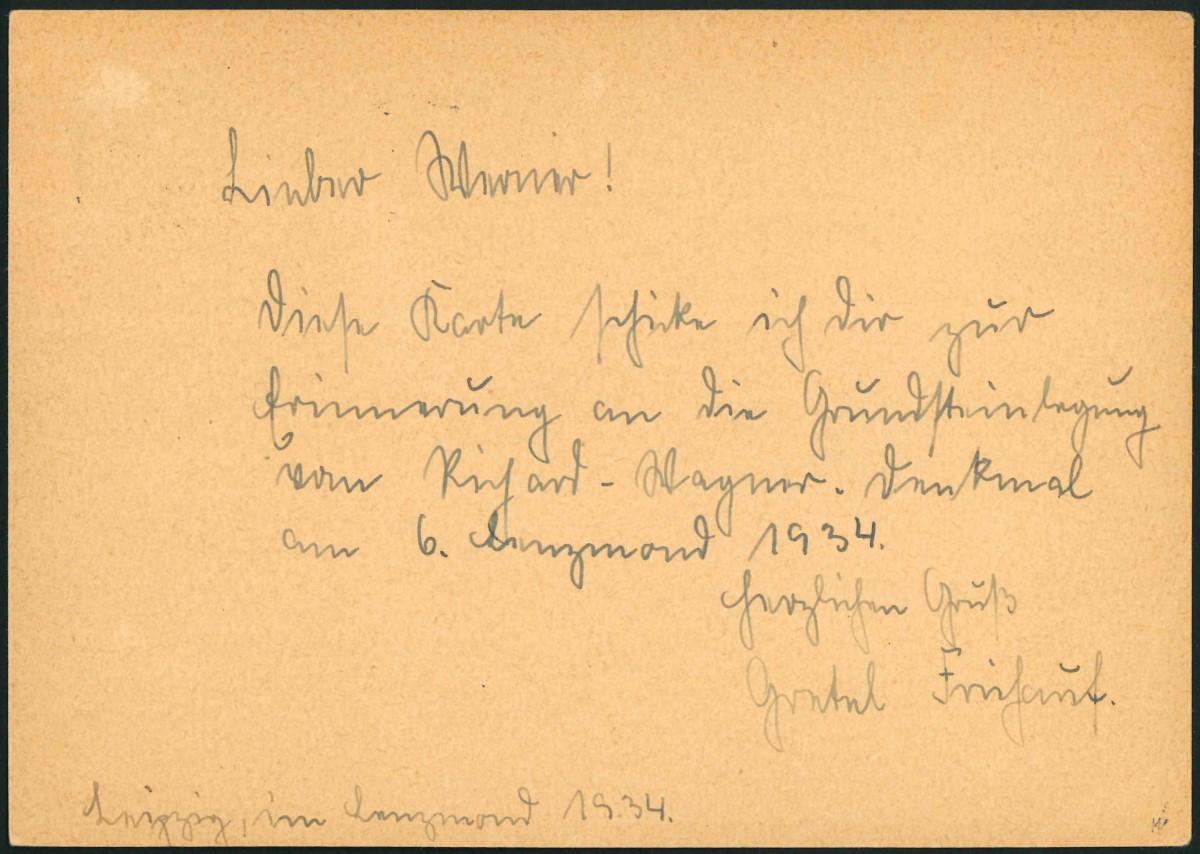 Lieber Werner!
Diese Karte schicke ich dir zur
Erinnerung an die Grundsteinlegung
vom Richard-Wagner-Denkmal
am 6. Lenzmond 1934.
Herzlichen Gruß
Gretel Friehauf.
Leipzig, im Lenzmond 1934.